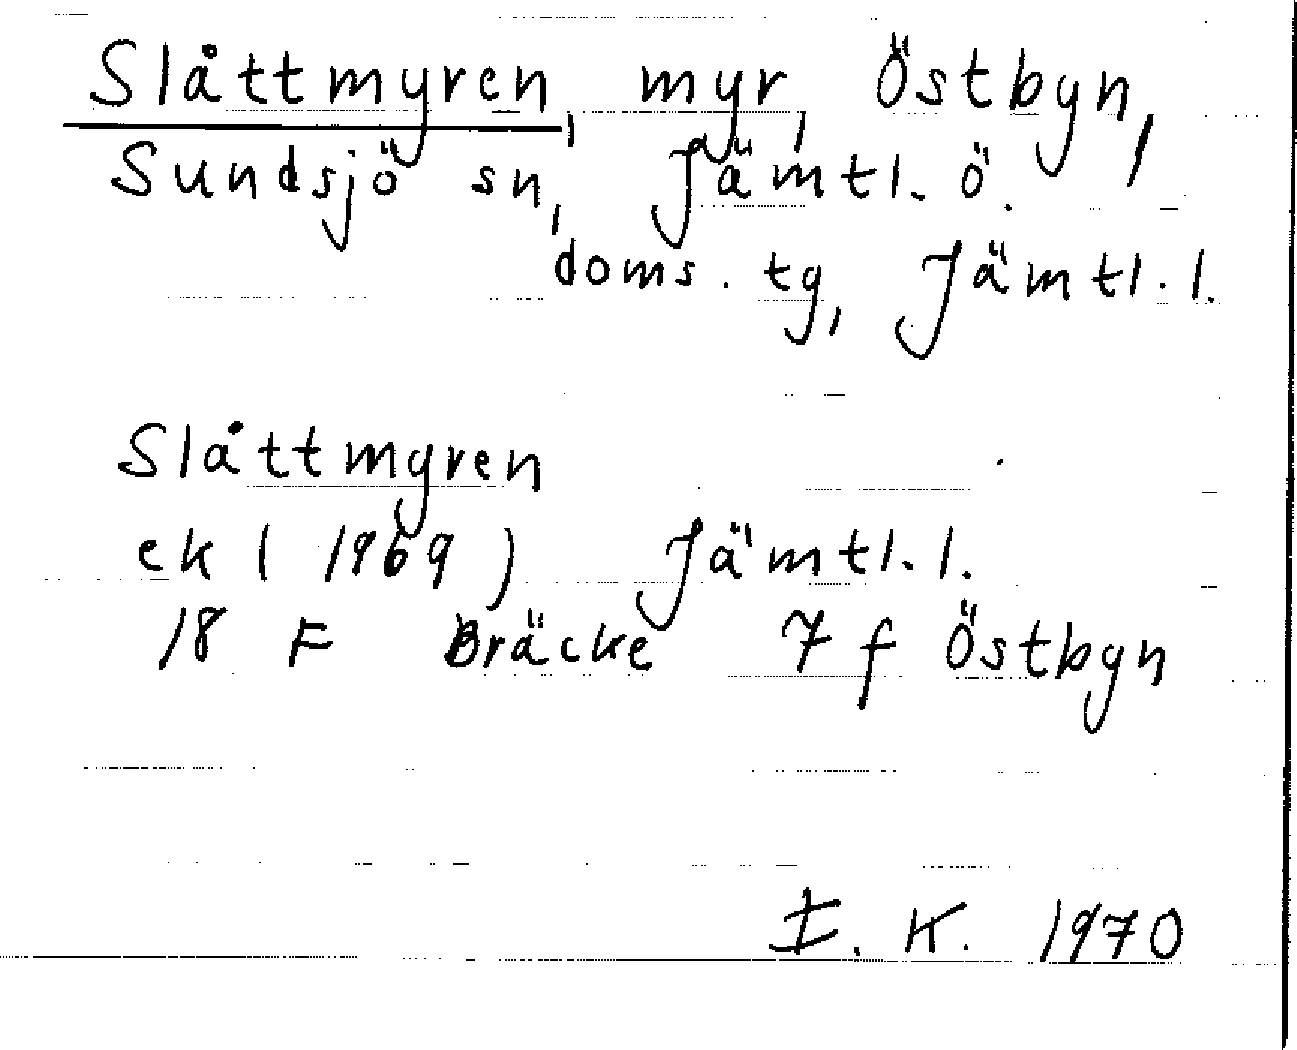 Slåttmyren, myr, Östbyn,
Sundsjö sn, Jämtl. ö.
doms. tg, Jämtl. l.
Slåttmyren
ek ( 1969 ) Jämtl. l.
18 F Bräcke 7 f Östbyn
I. K. 1970